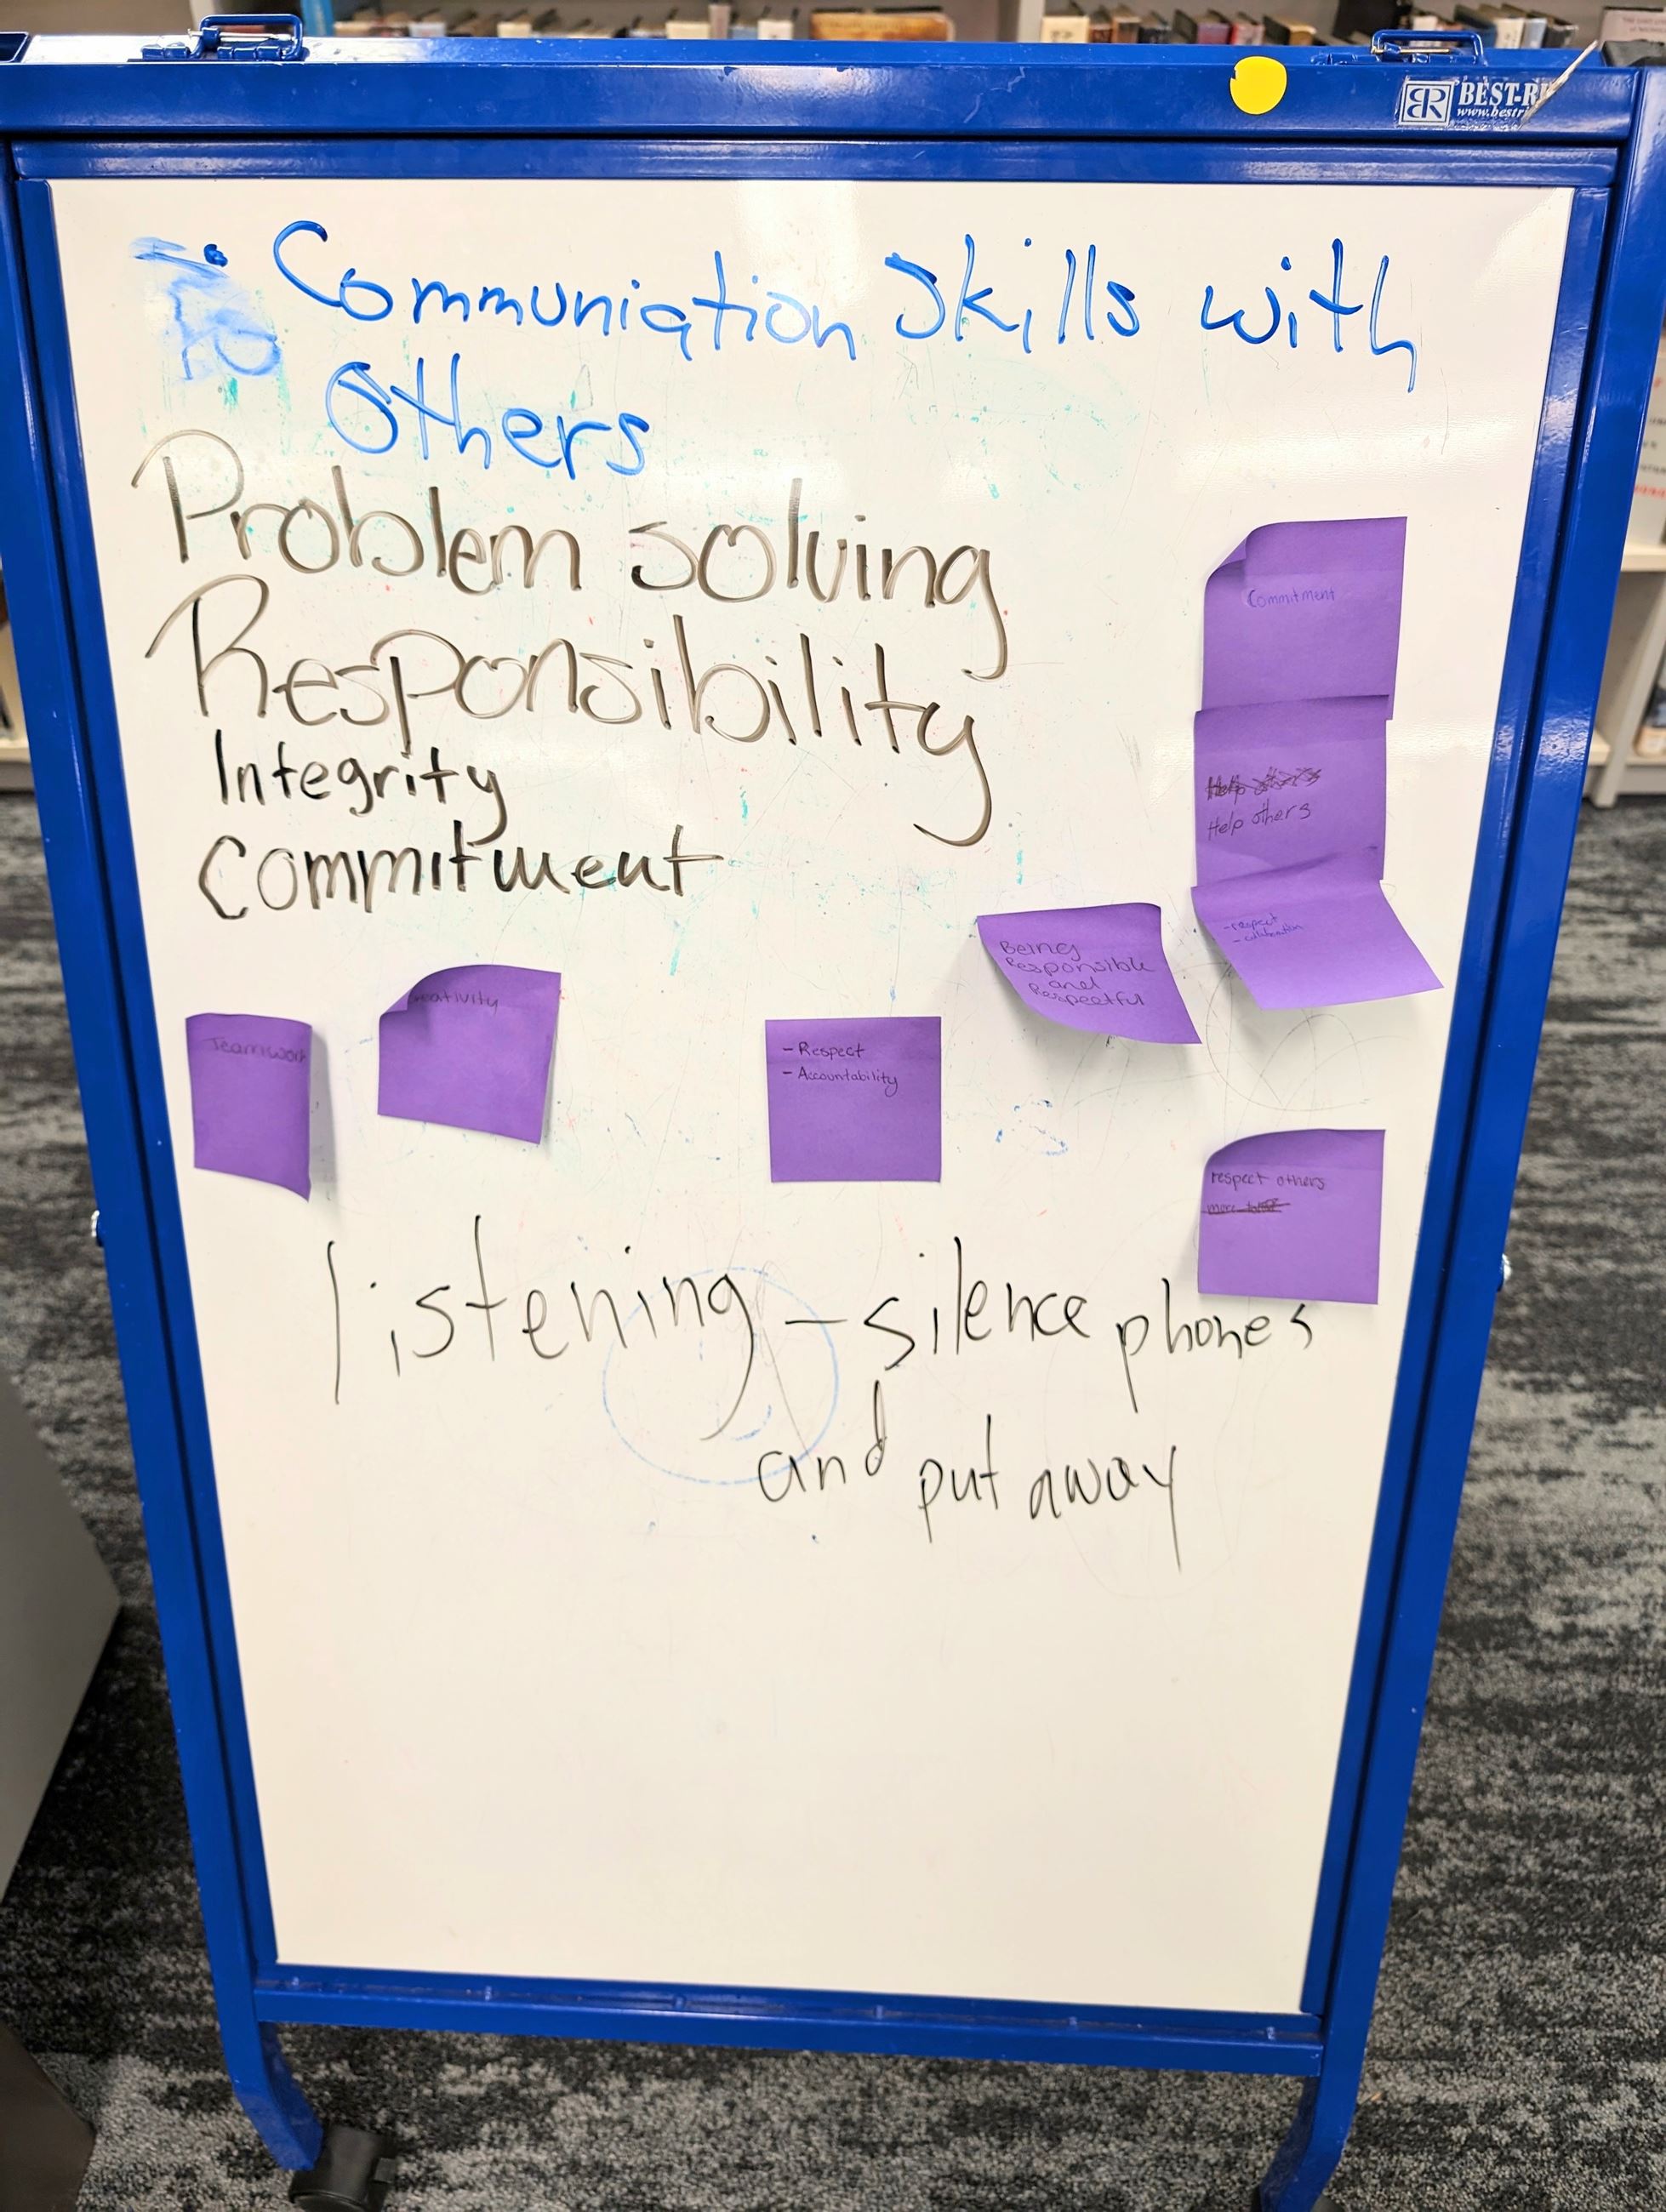 BEST-RI
www.bestri
• Communiqtion Skills with
Others
Problem solving
Responsibility
Integrity
Commitment
Commitment
Help others
Help others
- respect
- collaboration
Being
Responsible
and
Respectful
Creativity
Teamwork
- Respect
- Accountability
respect others
more
listening - silence phones
and put away